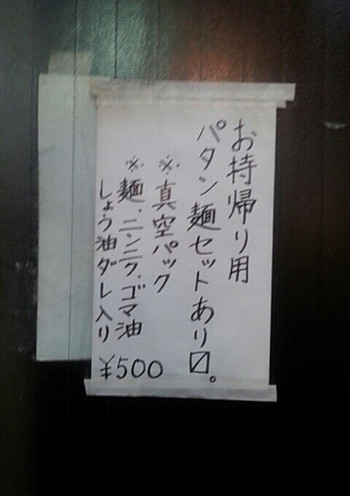 お持帰り用
パタン麺セットあり〼。
※真空パック
※麺.ニンニク.ゴマ油
しょう油ダレ入り
¥500